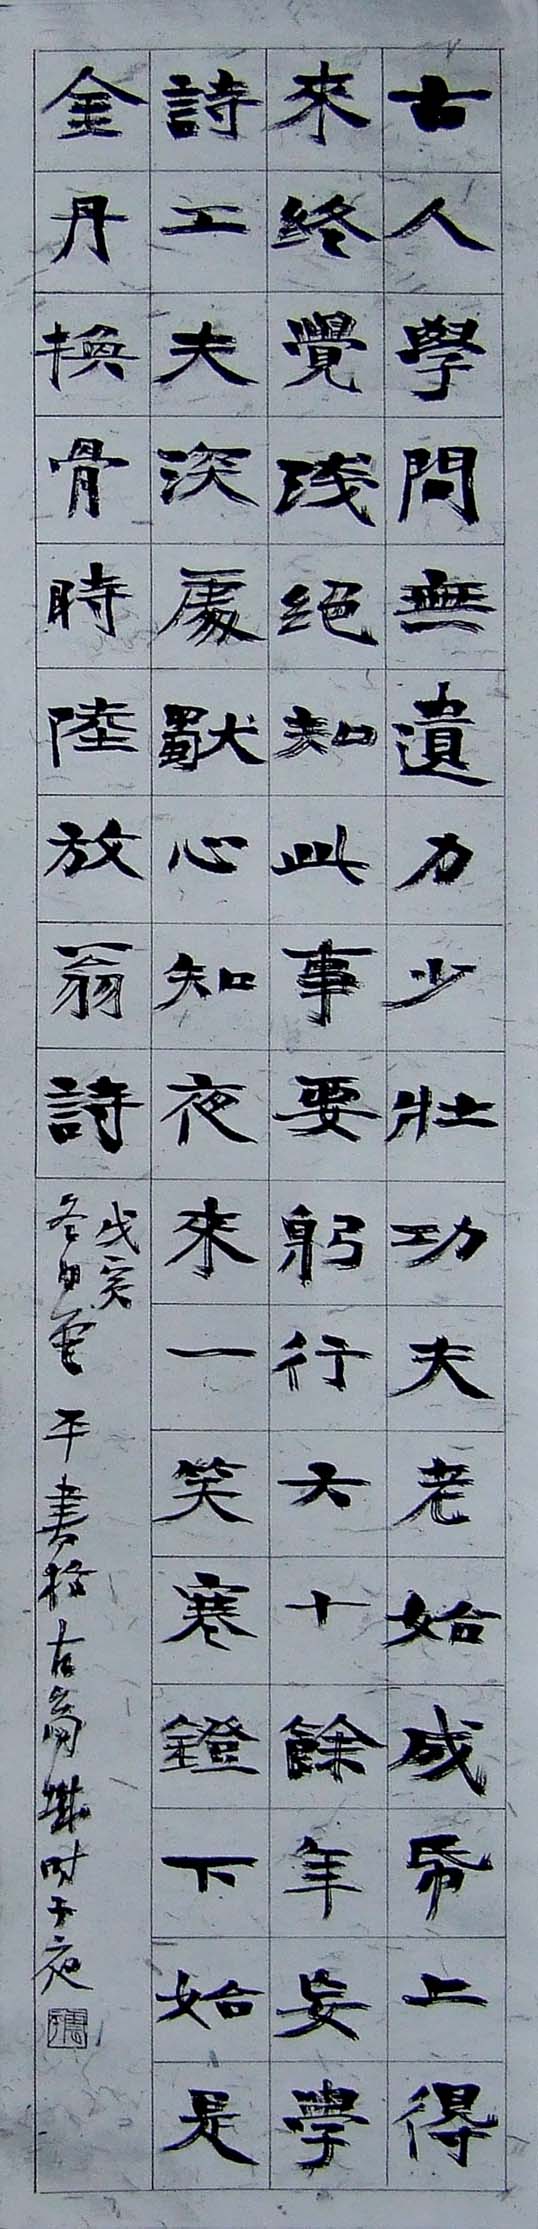 古人學問無遺力少壯功夫老始成帋上得
來終覺浅絕知此事要躬行六十餘年妄學
詩工夫深處獨心知夜來一笑寒鐙下始是
金丹換骨時陸放翁詩
戊寅
冬月雲平書於古商城時子夜